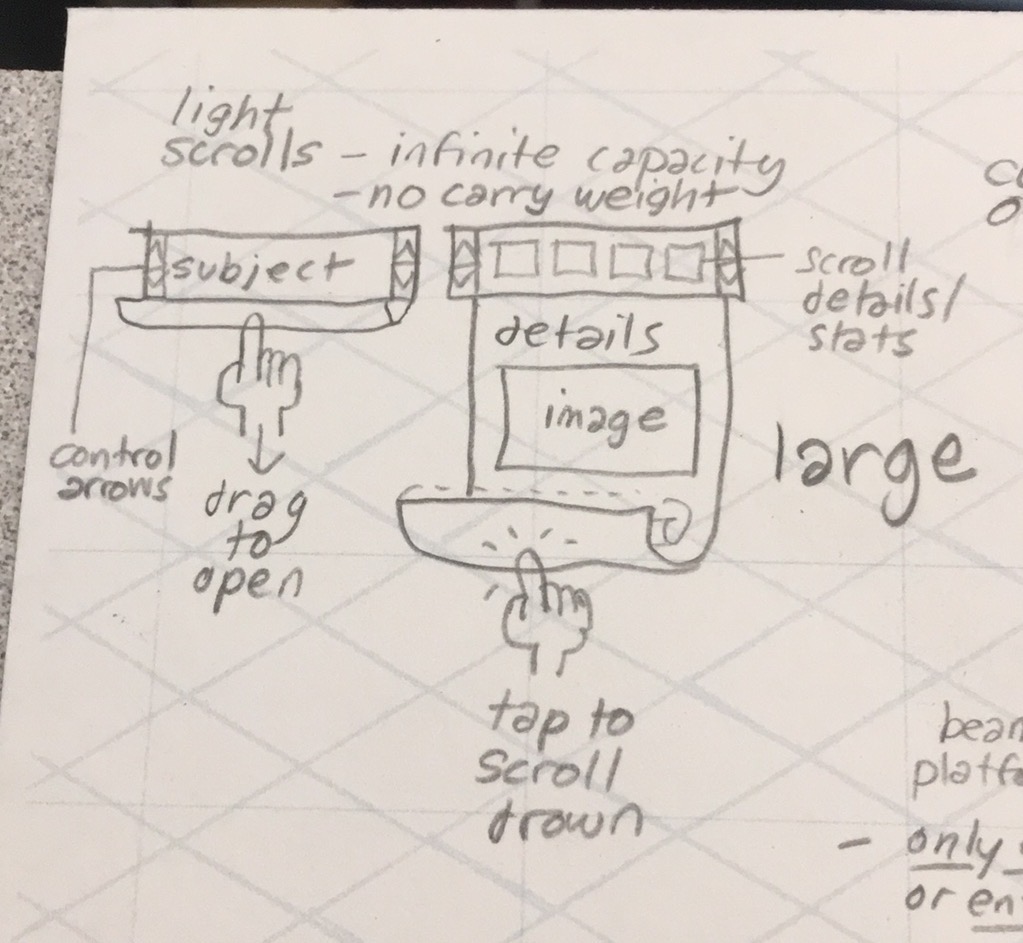 light
scrolls - infinite capacity
- no carry weight
subject
scroll
details/
stats
details
image
large
control
arrows
drag
to
open
tap to
scroll
drown
platf
- only
or en